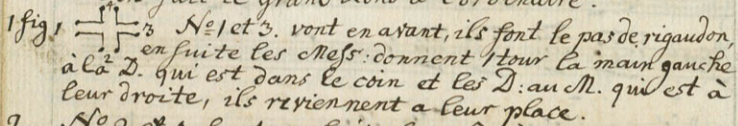 1 fig 1 4 3 2 No 1 et 3. vont en avant, ils font le pas de rigaudon,
ensuite les Mess: donnent 1 tour la main gauche
à la D. qui est dans le coin et les D: au M. qui est à
leur droite, ils reviennent a leur place.